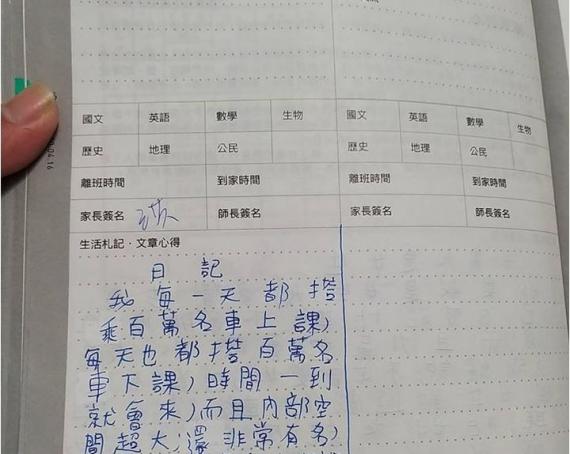 國文 英語 數學 生物 國文 英語 數學 生物
歷史 地理 公民 歷史 地理 公民
離班時間 到家時間 離班時間 到家時間
家長簽名 師長簽名 家長簽名 師長簽名
生活札記·文章心得
日記
我每一天都搭
乘百萬名車上課,
每天也都搭百萬名
車下課,時間一到
就會來,而且內部空
間超大,還非常有名,